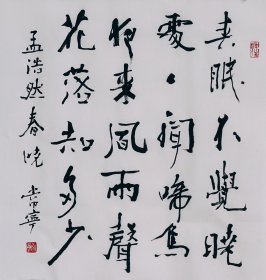 春眠不覺曉
處々聞啼鳥
夜來風雨聲
花落知多少
孟浩然春曉